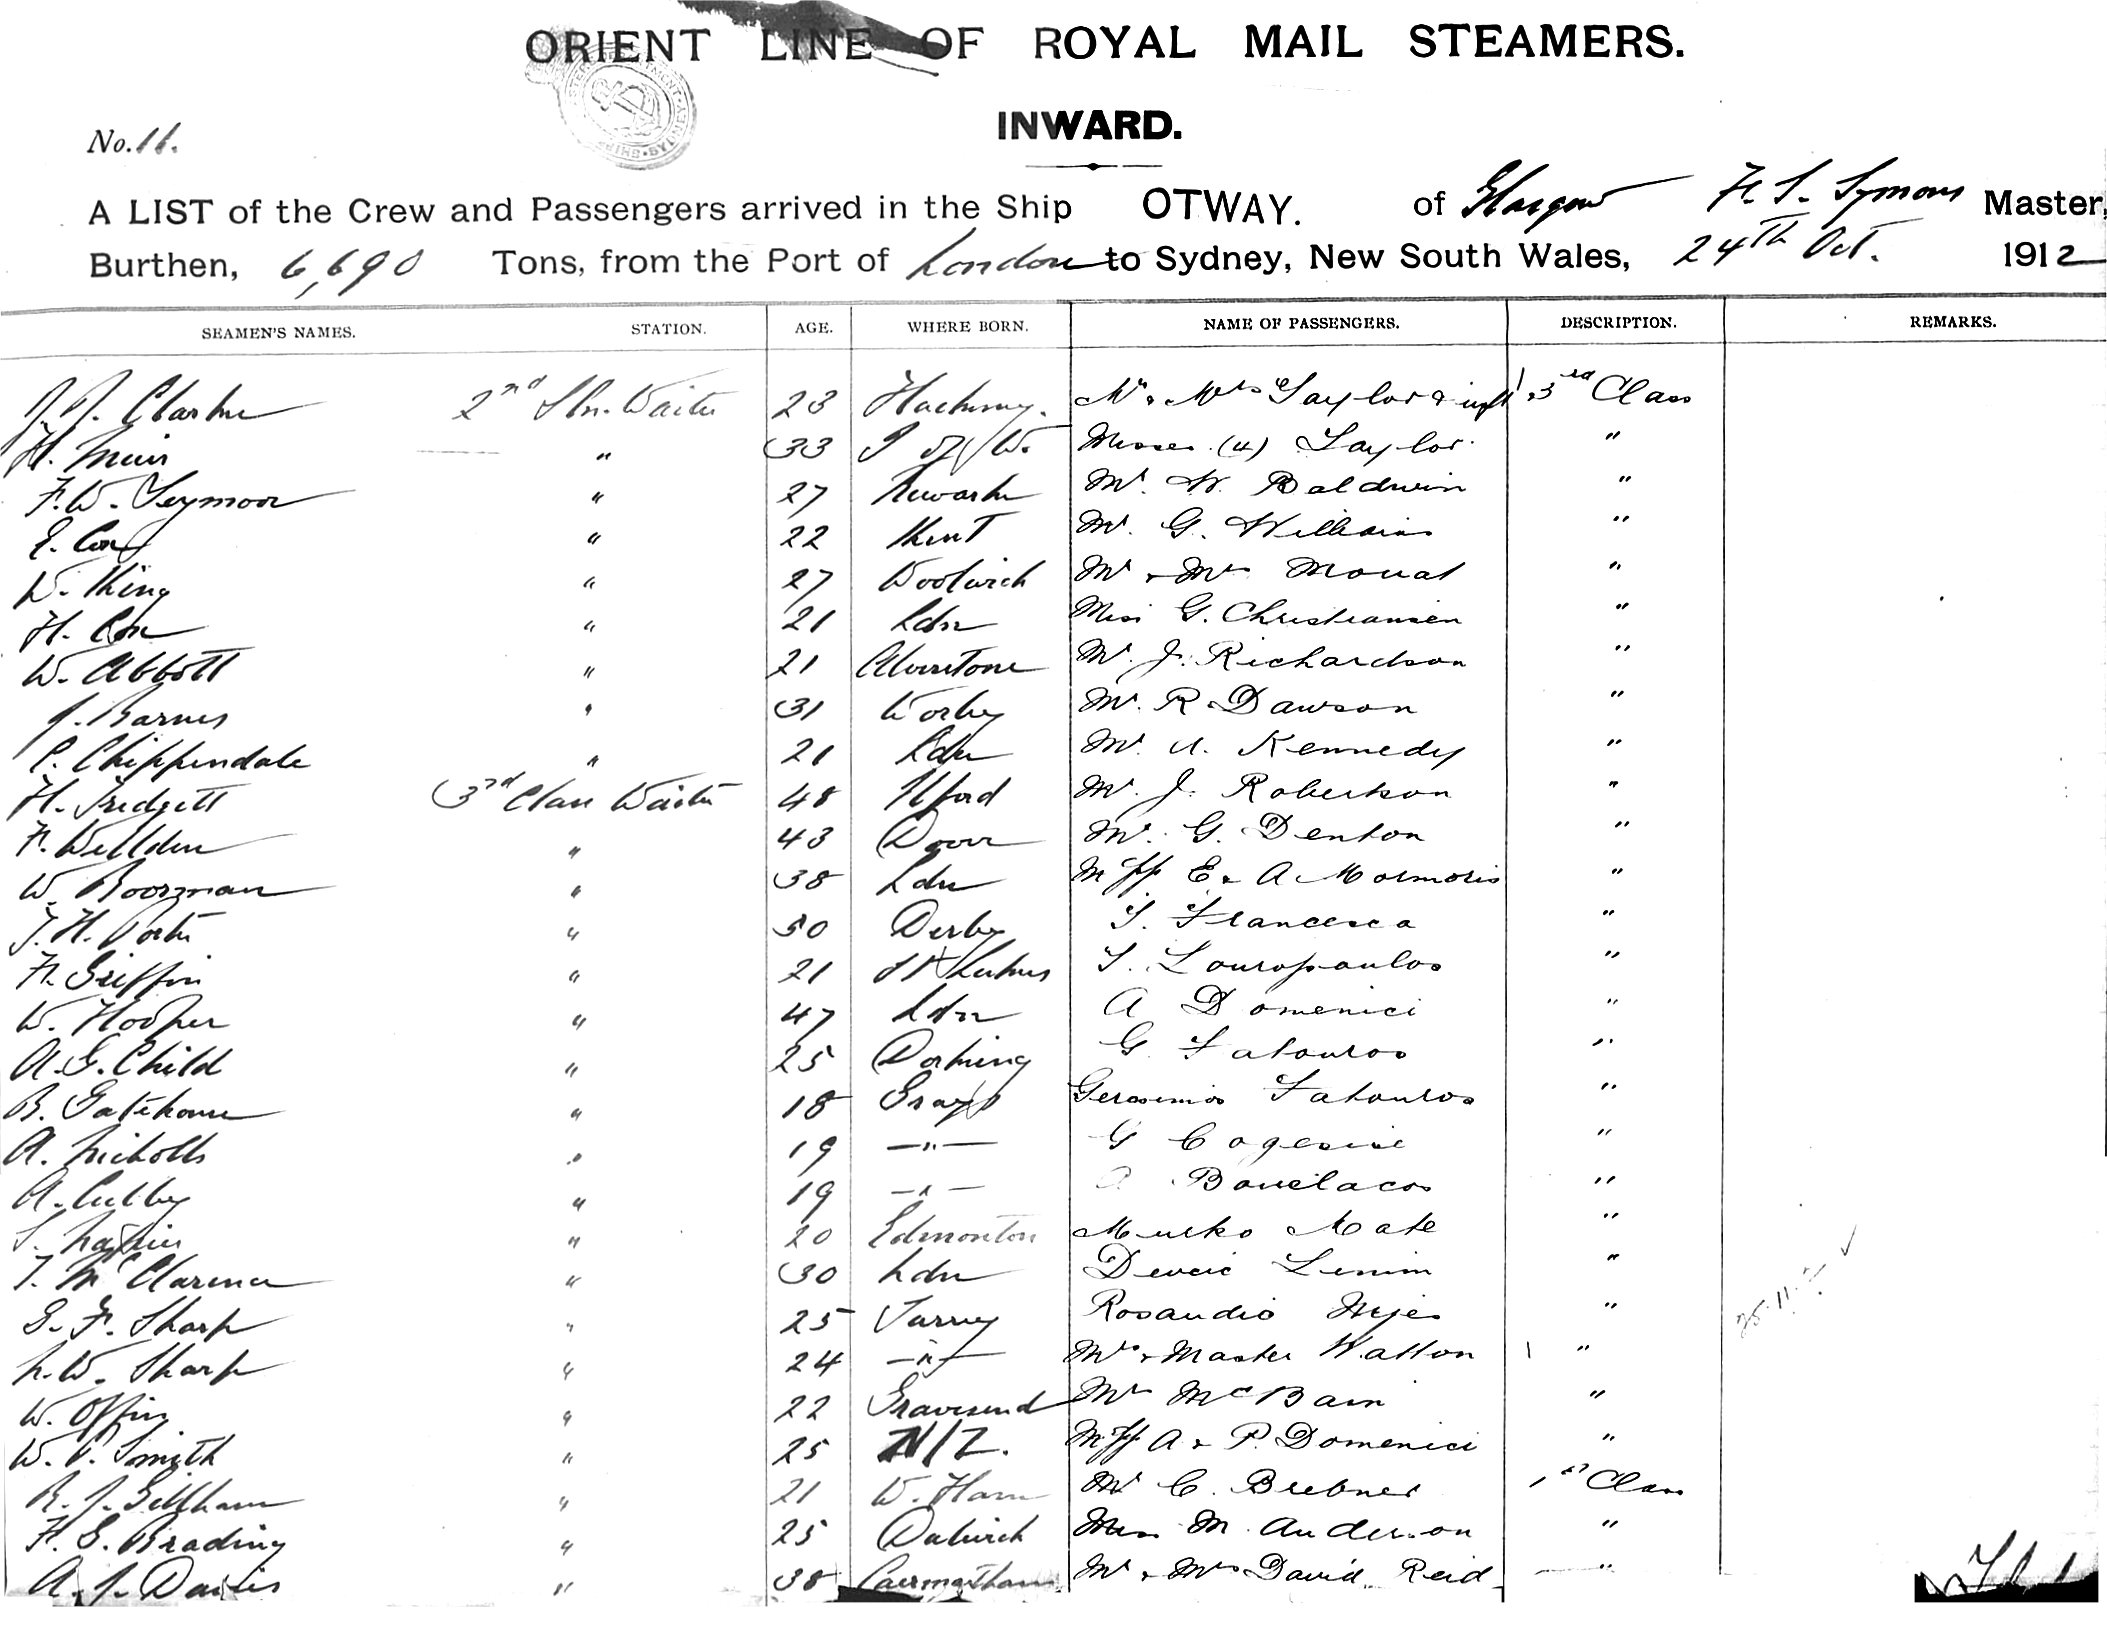 ORIENT LINE OF ROYAL MAIL STEAMERS.
INWARD.
No. 11.
A LIST of the Crew and Passengers arrived in the Ship OTWAY. of Glasgow F. S. Symons Master,
Burthen, 6,690 Tons, from the Port of London to Sydney, New South Wales, 24th Oct. 1912
SEAMEN'S NAMES. STATION. AGE. WHERE BORN. NAME OF PASSENGERS. DESCRIPTION. REMARKS.
J. J. Clarke 2nd Sln. Waiter 23 Hackney. Mr & Mrs Taylor & inft 3rd Class
H. Muir " 33 I of W. Misses (4) Taylor "
F. W. Seymour " 27 Newark Mr. W. Baldwin "
E. Cox " 22 Kent Mr. G. Williams "
W. King " 27 Woolwich Mr & Mrs Mouat "
H. Cox " 21 Ldn Miss G. Christiansen "
W. Abbott " 21 Alverstone Mr. J. Richardson "
J. Barnes " 31 Worley Mr. R Dawson "
C. Chippendale " 21 Ldn Mr. A. Kennedy "
H. Fridgett 3rd Class Waiter 48 Ilford Mr. J. Robertson "
F. Wellden " 43 Dover Mr. G. Denton "
W. Boorman " 38 Ldn M/ff E & A Mormoris "
J. H. Porter " 50 Derby S. Francesca "
F. Griffin " 21 St Lukes S. Louropoulos "
W. Hooper " 47 Ldn A Domenici "
A. G. Child " 25 Dorking G Fatouros "
B. Gatehouse " 18 Grays Gerasimos Fatouros "
A. Nicholls " 19 —"— G "
A. Culley " 19 —"— "
S. Napier " 20 Edmonton Murko Mate "
T. McClarence " 30 Ldn Devcic "
G. F. Sharp " 25 Surrey Rosandio "
L. W. Sharp " 24 —"— Mrs & Master Watton "
W. Offin " 22 Gravesend Mr McBain "
W. P. Smith " 25 N/Z. M/ff A & P. Domenici "
R. J. Gillham " 21 W. Ham Mr C. Brebner 1st Class
F. G. Brading " 25 Dulwich Miss M. Anderson "
A. J. Davies " 38 Mr & Mrs David Reid "